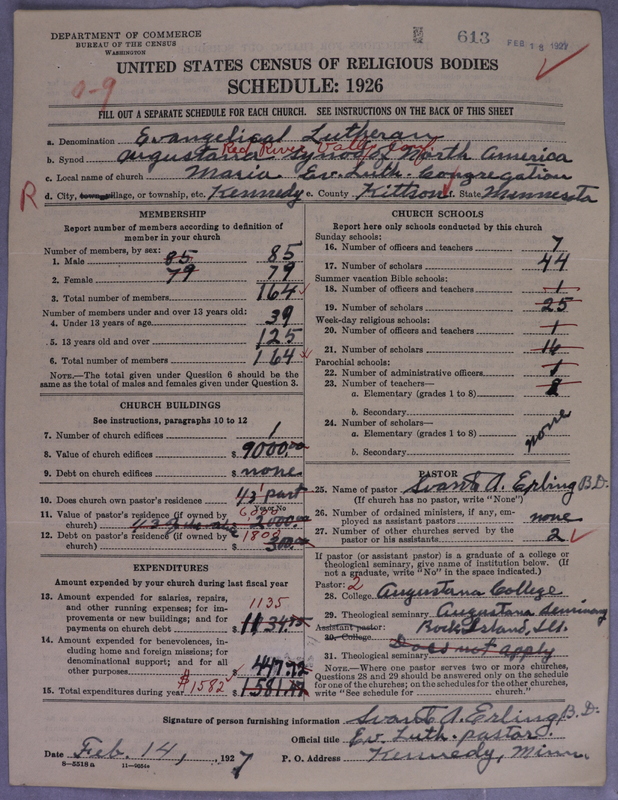 DEPARTMENT OF COMMERCE
BUREAU OF THE CENSUS
WASHINGTON
613
FEB 18 1927
UNITED STATES CENSUS OF RELIGIOUS BODIES
SCHEDULE: 1926
0-9
FILL OUT A SEPARATE SCHEDULE FOR EACH CHURCH. SEE INSTRUCTIONS ON THE BACK OF THIS SHEET
a. Denomination Evangelical Lutheran
Red River Valley Conf.
b. Synod Augustana Synod of North America
c. Local name of church Maria Ev. Luth. Congregation
R
d. City, town, village, or township, etc. Kennedy e. County Kittson f. State Minnesota
MEMBERSHIP
Report number of members according to definition of
member in your church
Number of members, by sex:
1. Male 85 85
2. Female 79 79
3. Total number of members 164
Number of members under and over 13 years old:
4. Under 13 years of age 39
5. 13 years old and over 125
6. Total number of members 164
NOTE.—The total given under Question 6 should be
same as the total of males and females given under Question 3.
CHURCH BUILDINGS
See instructions, paragraphs 10 to 12
7. Number of church edifices 1
8. Value of church edifices $ 9000.00
9. Debt on church edifices $ none
10. Does church own pastor's residence 1/3 part
Yes or No
11. Value of pastor's residence (if owned by 6000
church) $ 2000.00
12. Debt on pastor's residence (if owned by 1800
church) $ 300.00
EXPENDITURES
Amount expended by your church during last fiscal year
13. Amount expended for salaries, repairs,
and other running expenses; for im-
provements or new buildings; and for
payments on church debt 1135
$ 1134.55
14. Amount expended for benevolences, in-
cluding home and foreign missions; for
denominational support; and for all
other purposes $ 447.22
15. Total expenditures during year $1582 $ 1581.77
CHURCH SCHOOLS
Report here only schools conducted by this church
Sunday schools:
16. Number of officers and teachers 7
17. Number of scholars 44
Summer vacation Bible schools:
18. Number of officers and teachers 1
19. Number of scholars 25
Week-day religious schools:
20. Number of officers and teachers 1
21. Number of scholars 14
Parochial schools:
22. Number of administrative officers 1
23. Number of teachers—
a. Elementary (grades 1 to 8)
b. Secondary
24. Number of scholars—
a. Elementary (grades 1 to 8) none
b. Secondary
PASTOR
25. Name of pastor Svante A. Erling B.D.
(If church has no pastor, write "None")
26. Number of ordained ministers, if any, em-
ployed as assistant pastors none
27. Number of other churches served by the
pastor or his assistants 2
If pastor (or assistant pastor) is a graduate of a college or
theological seminary, give name of institution below. (If
not a graduate, write "No" in the space indicated.)
Pastor: 2
28. College Augustana College
29. Theological seminary Augustana Seminary
Assistant pastor: Rock Island, Ill.
30. College
31. Theological seminary Does not apply
NOTE.—Where one pastor serves two or more churches,
Questions 28 and 29 should be answered only on the schedule
for one of the churches; on the schedules for the other churches,
write "See schedule for church."
Signature of person furnishing information Svante A. Erling B.D.
Official title Ev. Luth. pastor.
Date Feb. 14, 1927
P. O. Address Kennedy, Minn.
8—5518a 11—9054a